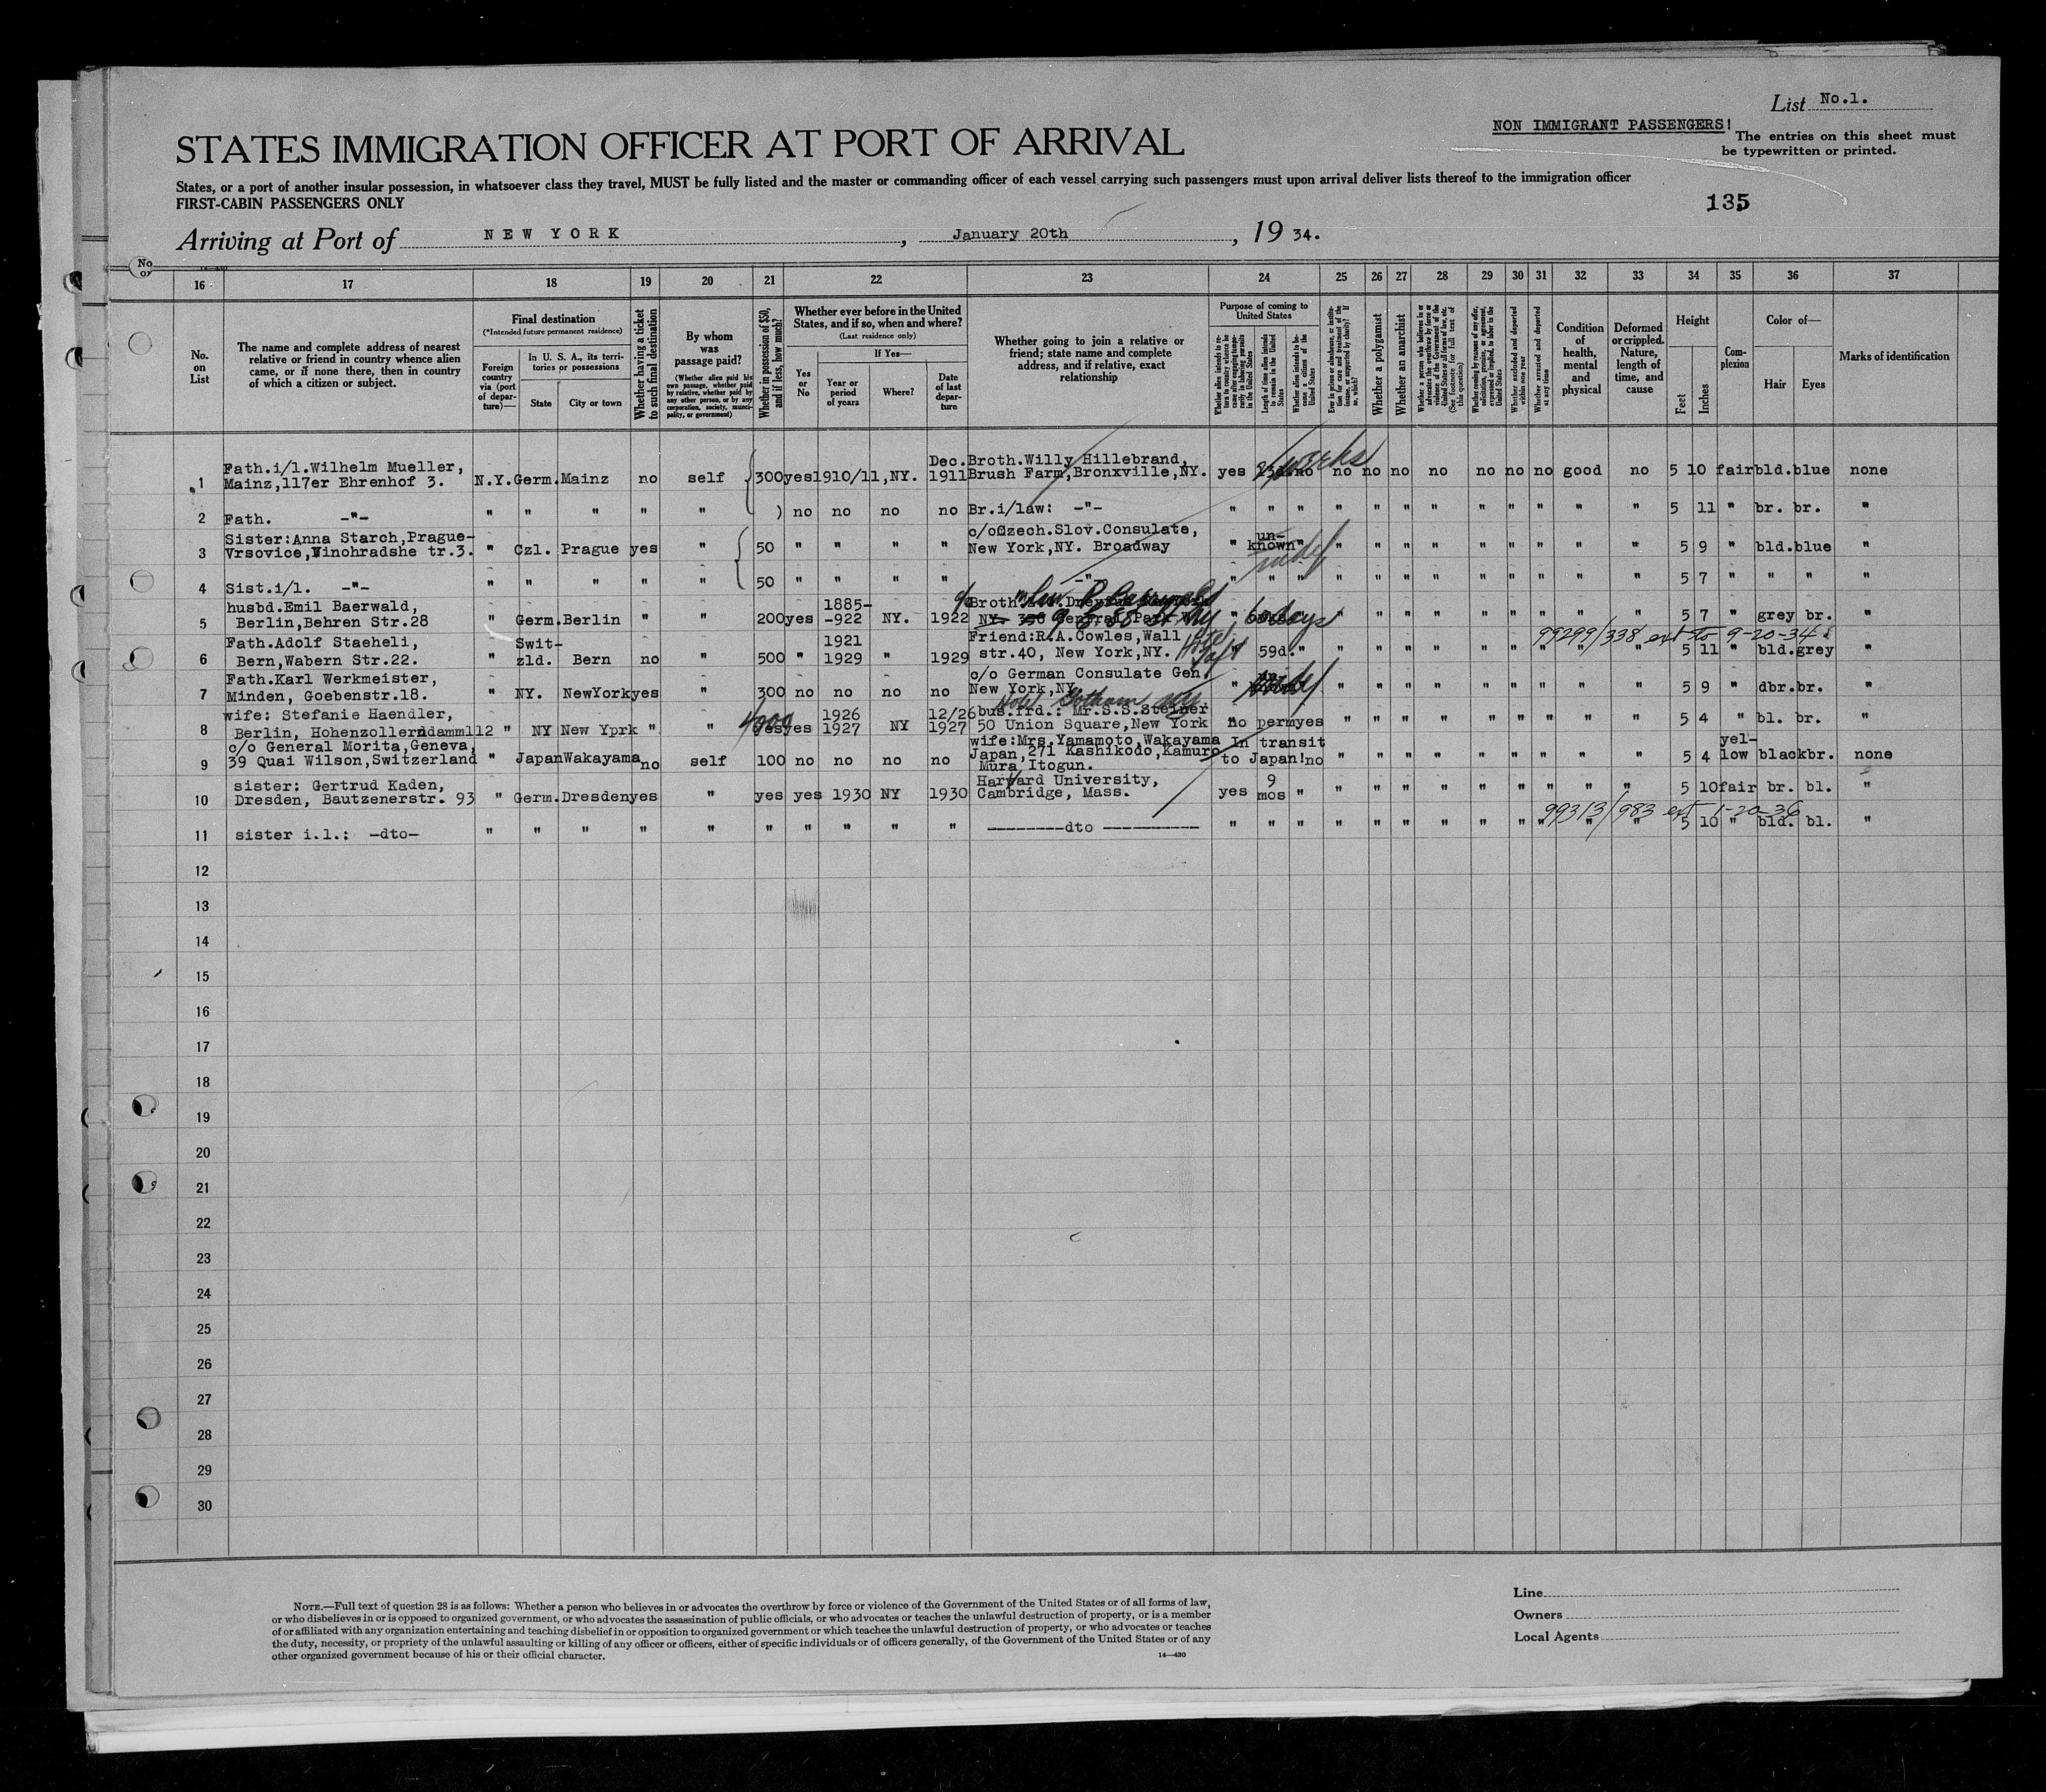 List No.1.
NON IMMIGRANT PASSENGERS!
The entries on this sheet must
be typewritten or printed.
STATES IMMIGRATION OFFICER AT PORT OF ARRIVAL
States, or a port of another insular possession, in whatsoever class they travel, MUST be fully listed and the master or commanding officer of each vessel carrying such passengers must upon arrival deliver lists thereof to the immigration officer
FIRST-CABIN PASSENGERS ONLY
135
Arriving at Port of NEW YORK, January 20th, 19 34.
16 17 18 19 20 21 22 23 24 25 26 27 28 29 30 31 32 33 34 35 36 37
No. on List
The name and complete address of nearest
relative or friend in country whence alien
came, or if none there, then in country
of which a citizen or subject.
Final destination
(*Intended future permanent residence)
Foreign country via (port of departure)—
In U. S. A., its territories or possessions
State
City or town
Whether having a ticket to such final destination
By whom was passage paid?
(Whether alien paid his own passage, whether paid by relative, whether paid by any other person, or by any corporation, society, municipality, or government)
Whether in possession of $50, and if less, how much?
Whether ever before in the United States, and if so, when and where?
(Last residence only)
Yes or No
If Yes—
Year or period of years
Where?
Date of last departure
Whether going to join a relative or
friend; state name and complete
address, and if relative, exact
relationship
Purpose of coming to United States
Whether alien intends to return to country whence he came after engaging temporarily in laboring pursuits in the United States
Length of time alien intends to remain in the United States
Whether alien intends to become a citizen of the United States
Whether a polygamist
Whether an anarchist
Whether excluded and deported within one year
Whether arrested and deported at any time
Condition of health, mental and physical
Deformed or crippled. Nature, length of time, and cause
Height
Feet
Inches
Complexion
Color of—
Hair
Eyes
Marks of identification
1 Fath.i/l.Wilhelm Mueller, Mainz,117er Ehrenhof 3. N.Y. Germ. Mainz no self 300 yes 1910/11,NY. Dec. 1911 Broth.Willy Hillebrand, Brush Farm,Bronxville,NY. yes weeks no no no no no no no no good no 5 10 fair bld. blue none
2 Fath. -"- " " " " " ) no no no no Br.i/law: -"- " " " " " " " " " " " " 5 11 " br. br. "
3 Sister:Anna Starch,Prague- Vrsovice,Vinohradshe tr.3. " Czl. Prague yes " 50 " " " " c/o Czech.Slov.Consulate, New York,NY. Broadway " un- known " " " " " " " " " " 5 9 " bld. blue "
4 Sist.i/l. -"- " " " " " 50 " " " " -"- " " " " " " " " " " " " 5 7 " " " "
5 husbd.Emil Baerwald, Berlin,Behren Str.28 " Germ. Berlin " " 200 yes 1885- -922 NY. 1922 Broth. " days " " " " " " " " " 5 7 " grey br. "
99299/338 ext to 9-20-34
6 Fath.Adolf Staeheli, Bern,Wabern Str.22. " Swit- zld. Bern no " 500 " 1921 1929 " 1929 Friend:R.A.Cowles, Wall str.40, New York,NY. Hotel Taft " 59d. " " " " " " " " " " 5 11 " bld. grey "
7 Fath.Karl Werkmeister, Minden, Goebenstr.18. " NY. NewYork yes " 300 no no no no c/o German Consulate Gen. New York,NY. " " " " " " " " " " 5 9 " dbr. br. "
Hotel Gotham
8 wife: Stefanie Haendler, Berlin, Hohenzollerndamm112 " NY New Yprk " " 4000 yes yes 1926 1927 NY 12/26 1927 bus.frd.: Mr.S.S.Steiner 50 Union Square,New York no perm yes " " " " " " " " " 5 4 " bl. br. "
9 c/o General Morita,Geneva, 39 Quai Wilson,Switzerland " Japan Wakayama no self 100 no no no no wife:Mrs.Yamamoto,Wakayama Japan, 271 Kashikodo,Kamuro Mura, Itogun. In transit to Japan! no " " " " " " " " " 5 4 yel- low black br. none
10 sister: Gertrud Kaden, Dresden, Bautzenerstr. 93 " Germ. Dresden yes " yes yes 1930 NY 1930 Harvard University, Cambridge, Mass. yes 9 mos " " " " " " " " " " 5 10 fair br. bl. "
99313/983 ext 1-20-36
11 sister i.l.: -dto- " " " " " " " " " " --------dto---------- " " " " " " " " " " " " 5 10 " bld. bl. "
12
13
14
15
16
17
18
19
20
21
22
23
24
25
26
27
28
29
30
NOTE.—Full text of question 28 is as follows: Whether a person who believes in or advocates the overthrow by force or violence of the Government of the United States or of all forms of law,
or who disbelieves in or is opposed to organized government, or who advocates the assassination of public officials, or who advocates or teaches the unlawful destruction of property, or is a member
of or affiliated with any organization entertaining and teaching disbelief in or opposition to organized government or which teaches the unlawful destruction of property, or who advocates or teaches
the duty, necessity, or propriety of the unlawful assaulting or killing of any officer or officers, either of specific individuals or of officers generally, of the Government of the United States or of any
other organized government because of his or their official character.
14—430
Line
Owners
Local Agents